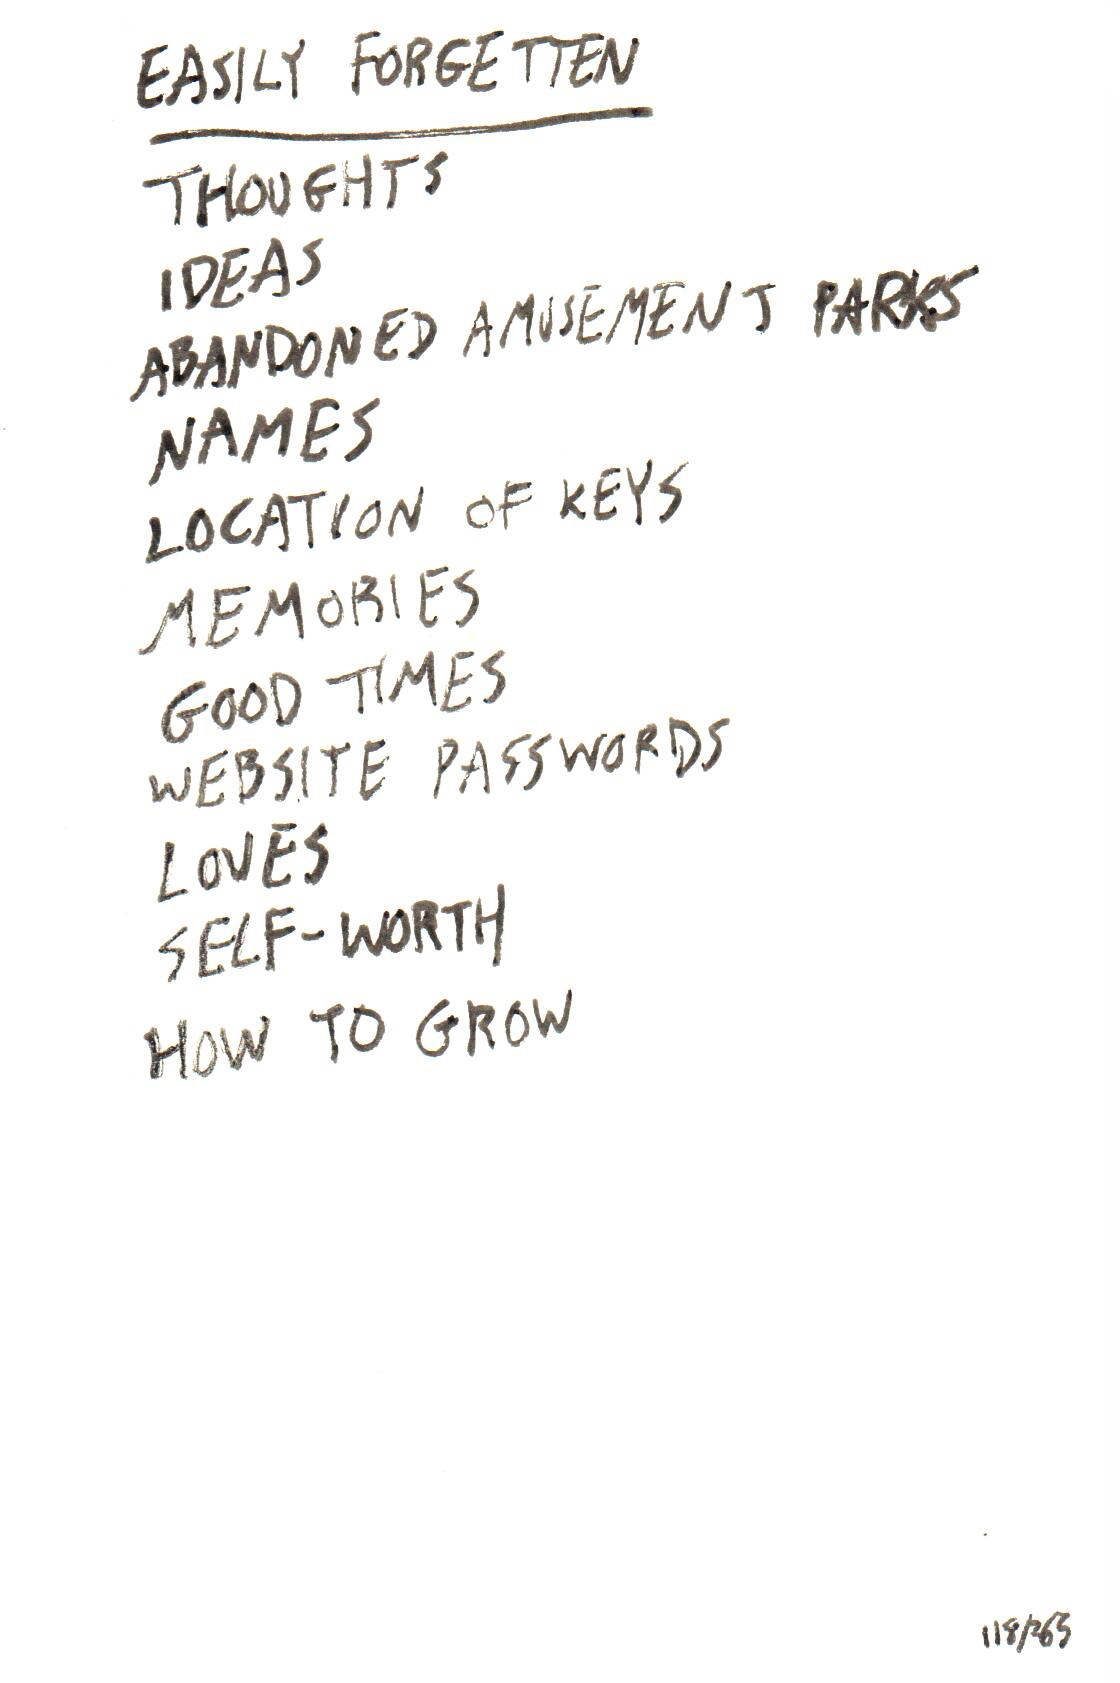 EASILY FORGETTEN
THOUGHTS
IDEAS
ABANDONED AMUSEMENT PARKS
NAMES
LOCATION OF KEYS
MEMORIES
GOOD TIMES
WEBSITE PASSWORDS
LOVES
SELF-WORTH
HOW TO GROW
118/365